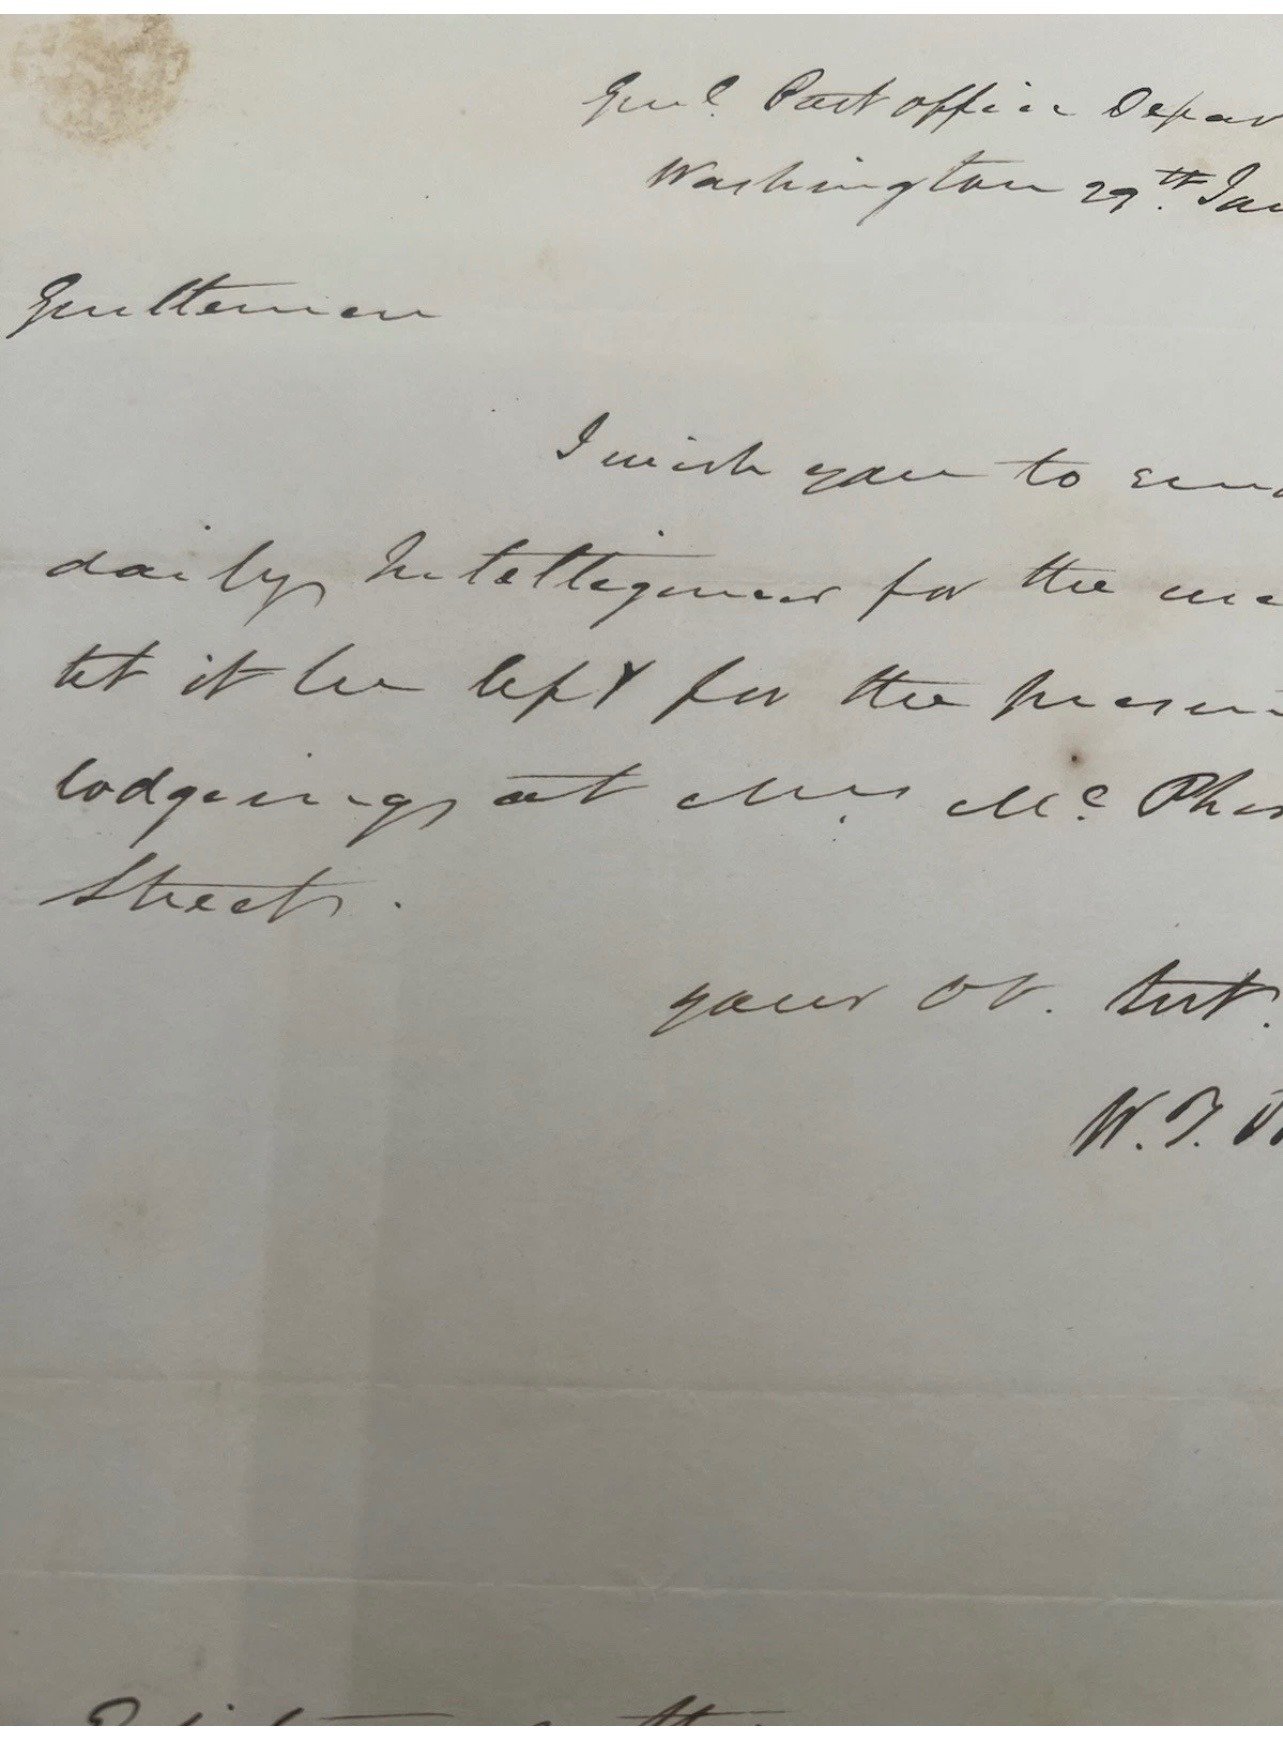 Genl. Post office Depar
Washington 29th Jan
Gentlemen
I wish you to send
daily Intelligencer for the use
let it be left for the presen
lodgings at Mrs. Mc. Pher
Street.
your Ob. Sert.
W. T.